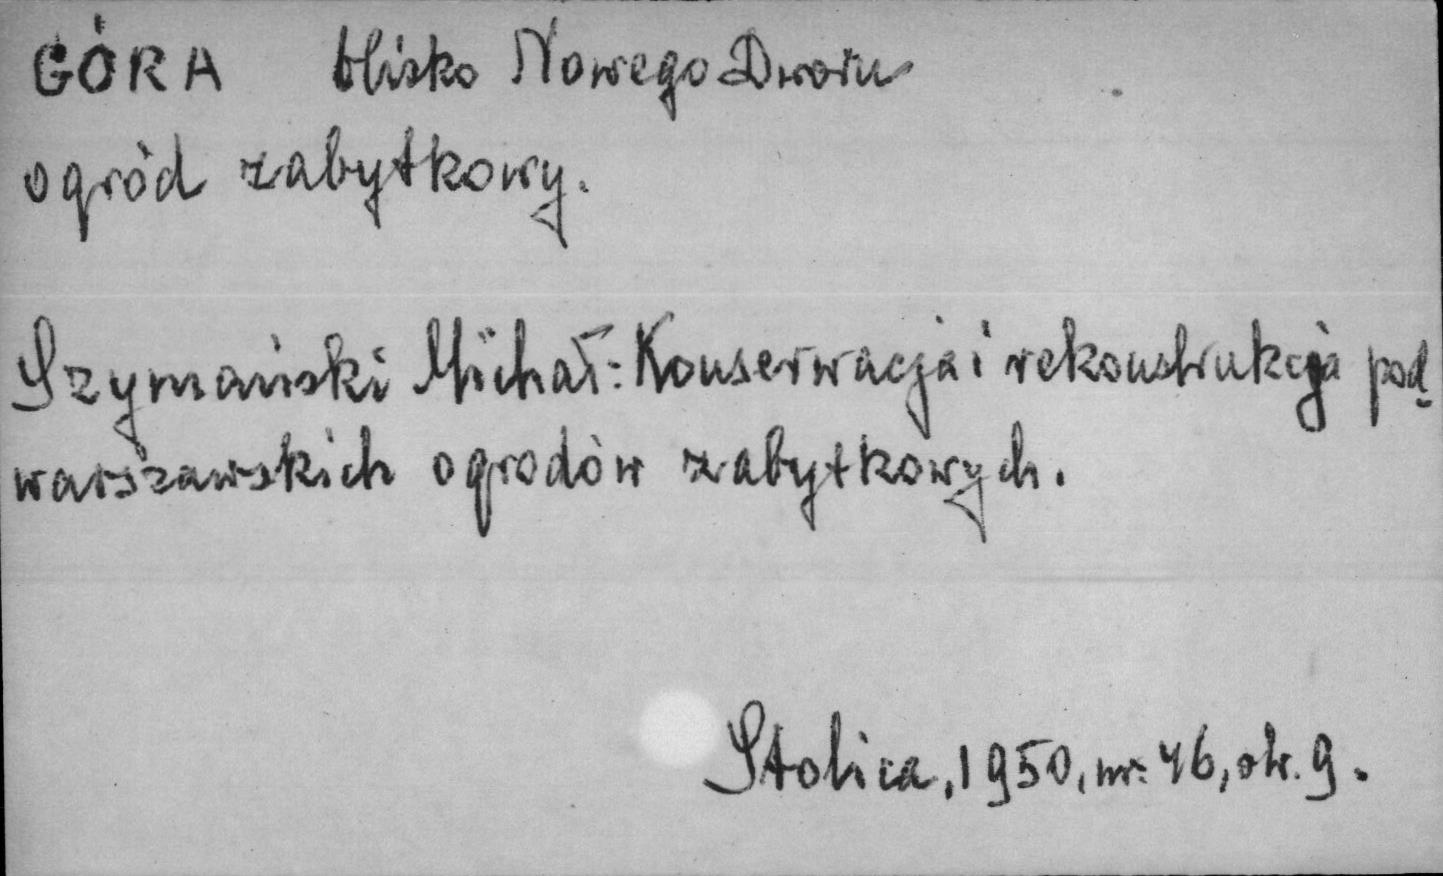 GÓRA blisko Nowego Dworu
ogród zabytkowy.
Szymański Michał: Konserwacja i rekonstrukcja pod-
warszawskich ogrodów zabytkowych.
Stolica, 1950, nr. 46, str. 9.